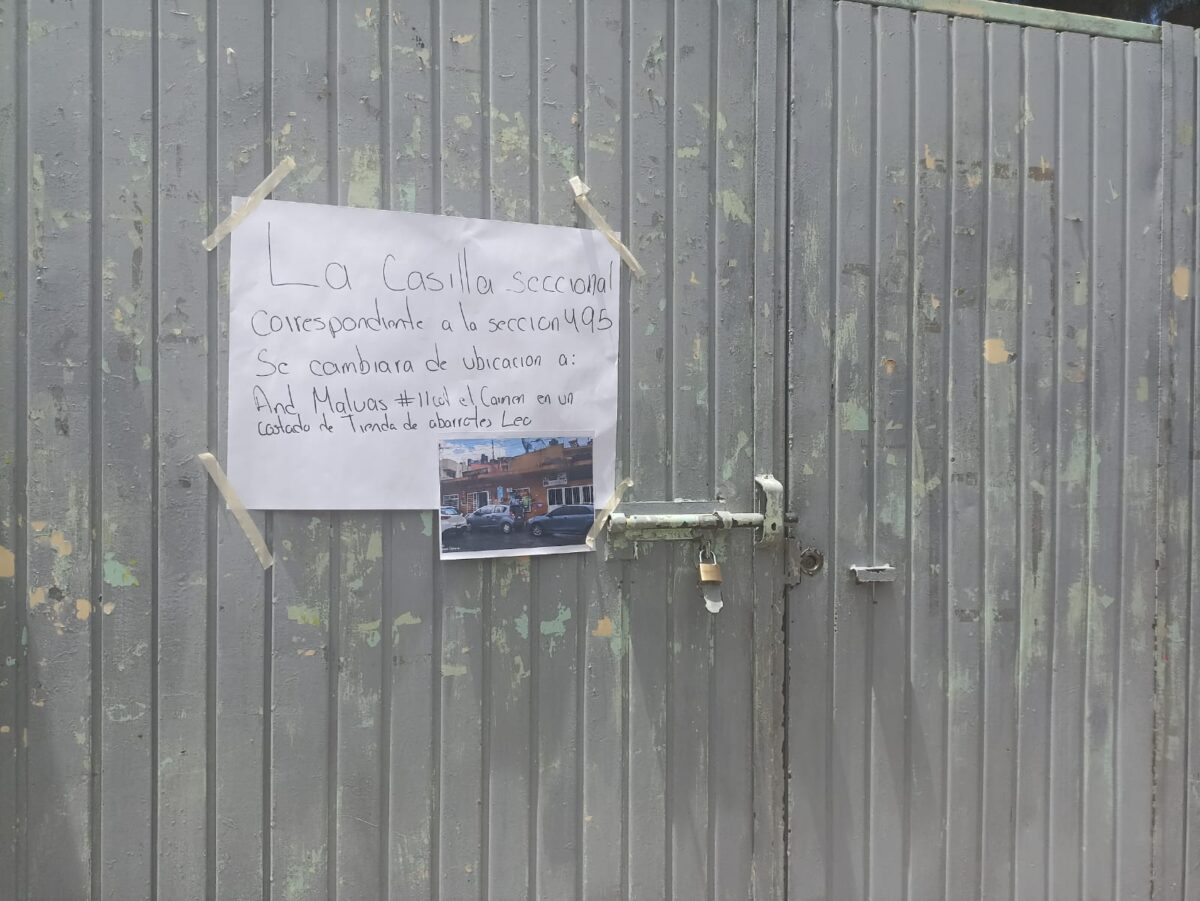 La Casilla seccional
Correspondiente a la seccion 495
Se cambiara de ubicacion a:
And Malvas #11 col el Carmen en un
costado de Tienda de abarrotes Leo